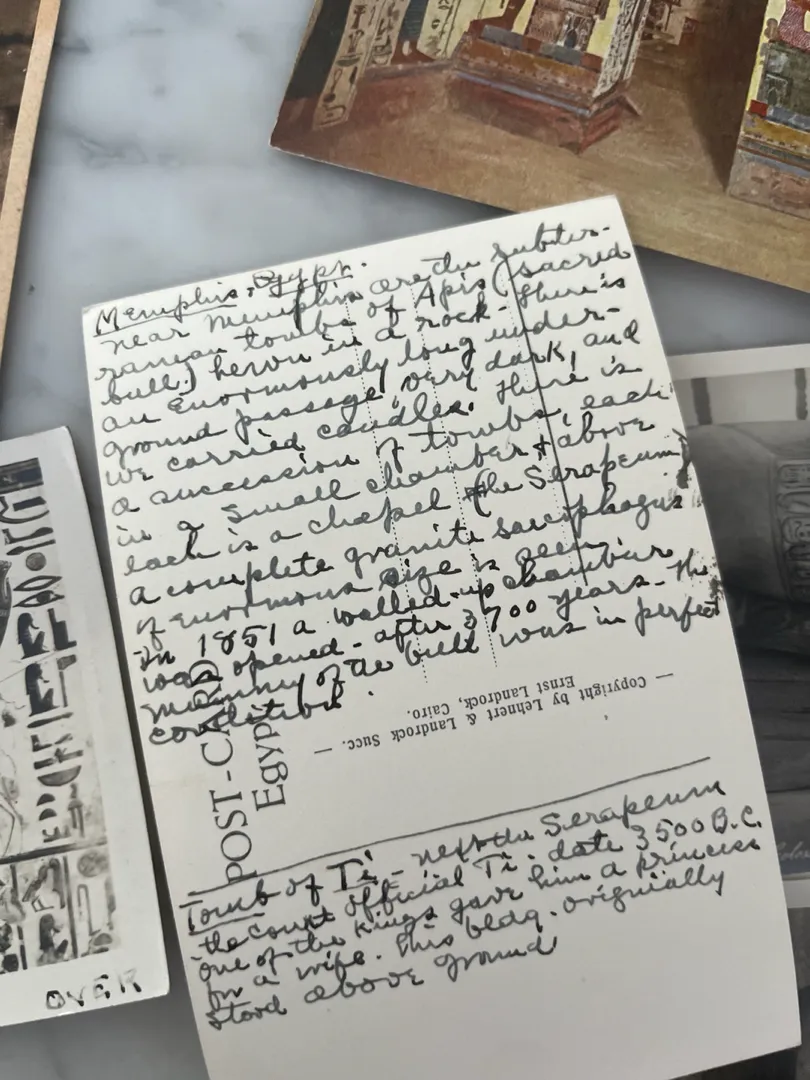 Memphis, Egypt.
near Memphis are the subter-
ranean tombs of Apis (sacred
bull) hewn in a rock. There is
an enormously long under-
ground passage, very dark, and
we carried candles. There is
a succession of tombs, each
in a small chamber & above
each is a chapel. The Serapeum
a complete granite sarcophagus
of enormous size is seen.
In 1851 a walled-up chamber
was opened - after 3700 years. The
mummy of the bull was in perfect
condition.
POST-CARD
Egypt
— Copyright by Lehnert & Landrock Succ. —
Ernst Landrock, Cairo.
Tomb of Ti - next the Serapeum
the court official Ti. date 3500 B.C.
one of the kings gave him a princess
for a wife. This bldg. originially
stood above ground
OVER